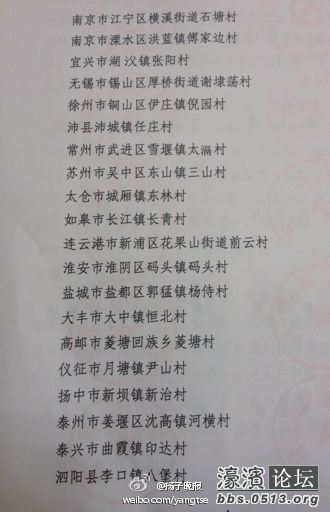 南京市江宁区横溪街道石塘村
南京市溧水区洪蓝镇傅家边村
宜兴市湖㳇镇张阳村
无锡市锡山区厚桥街道谢埭荡村
徐州市铜山区伊庄镇倪园村
沛县沛城镇任庄村
常州市武进区雪堰镇太滆村
苏州市吴中区东山镇三山村
太仓市城厢镇东林村
如皋市长江镇长青村
连云港市新浦区花果山街道前云村
淮安市淮阴区码头镇码头村
盐城市盐都区郭猛镇杨侍村
大丰市大中镇恒北村
高邮市菱塘回族乡菱塘村
仪征市月塘镇尹山村
扬中市新坝镇新治村
泰州市姜堰区沈高镇河横村
泰兴市曲霞镇印达村
泗阳县李口镇八堡村
@扬子晚报
weibo.com/yangtse
濠滨论坛
bbs.0513.org